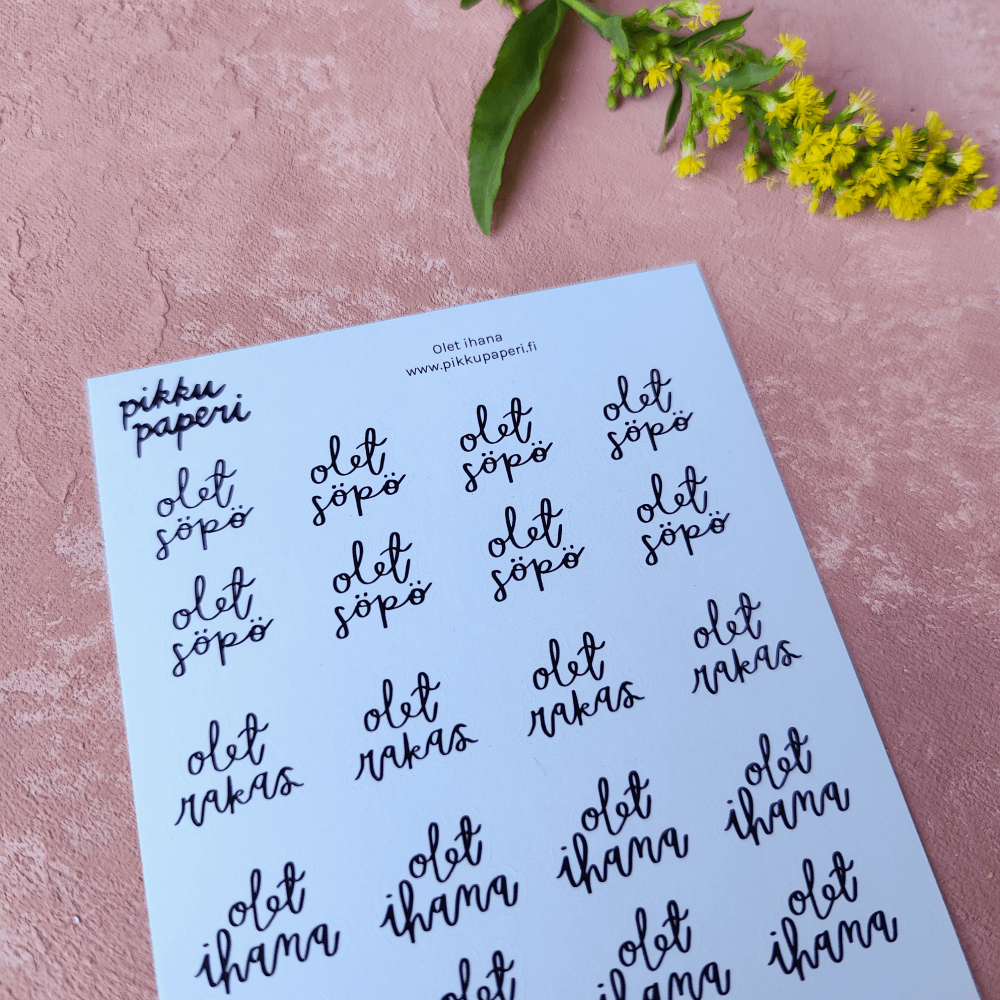 Olet ihana
www.pikkupaperi.fi
pikku
paperi
olet olet olet olet
söpö söpö söpö söpö
olet olet olet olet
söpö söpö söpö söpö
olet olet olet olet
rakas rakas rakas rakas
olet olet olet olet
ihana ihana ihana ihana
olet olet olet
ihana ihana